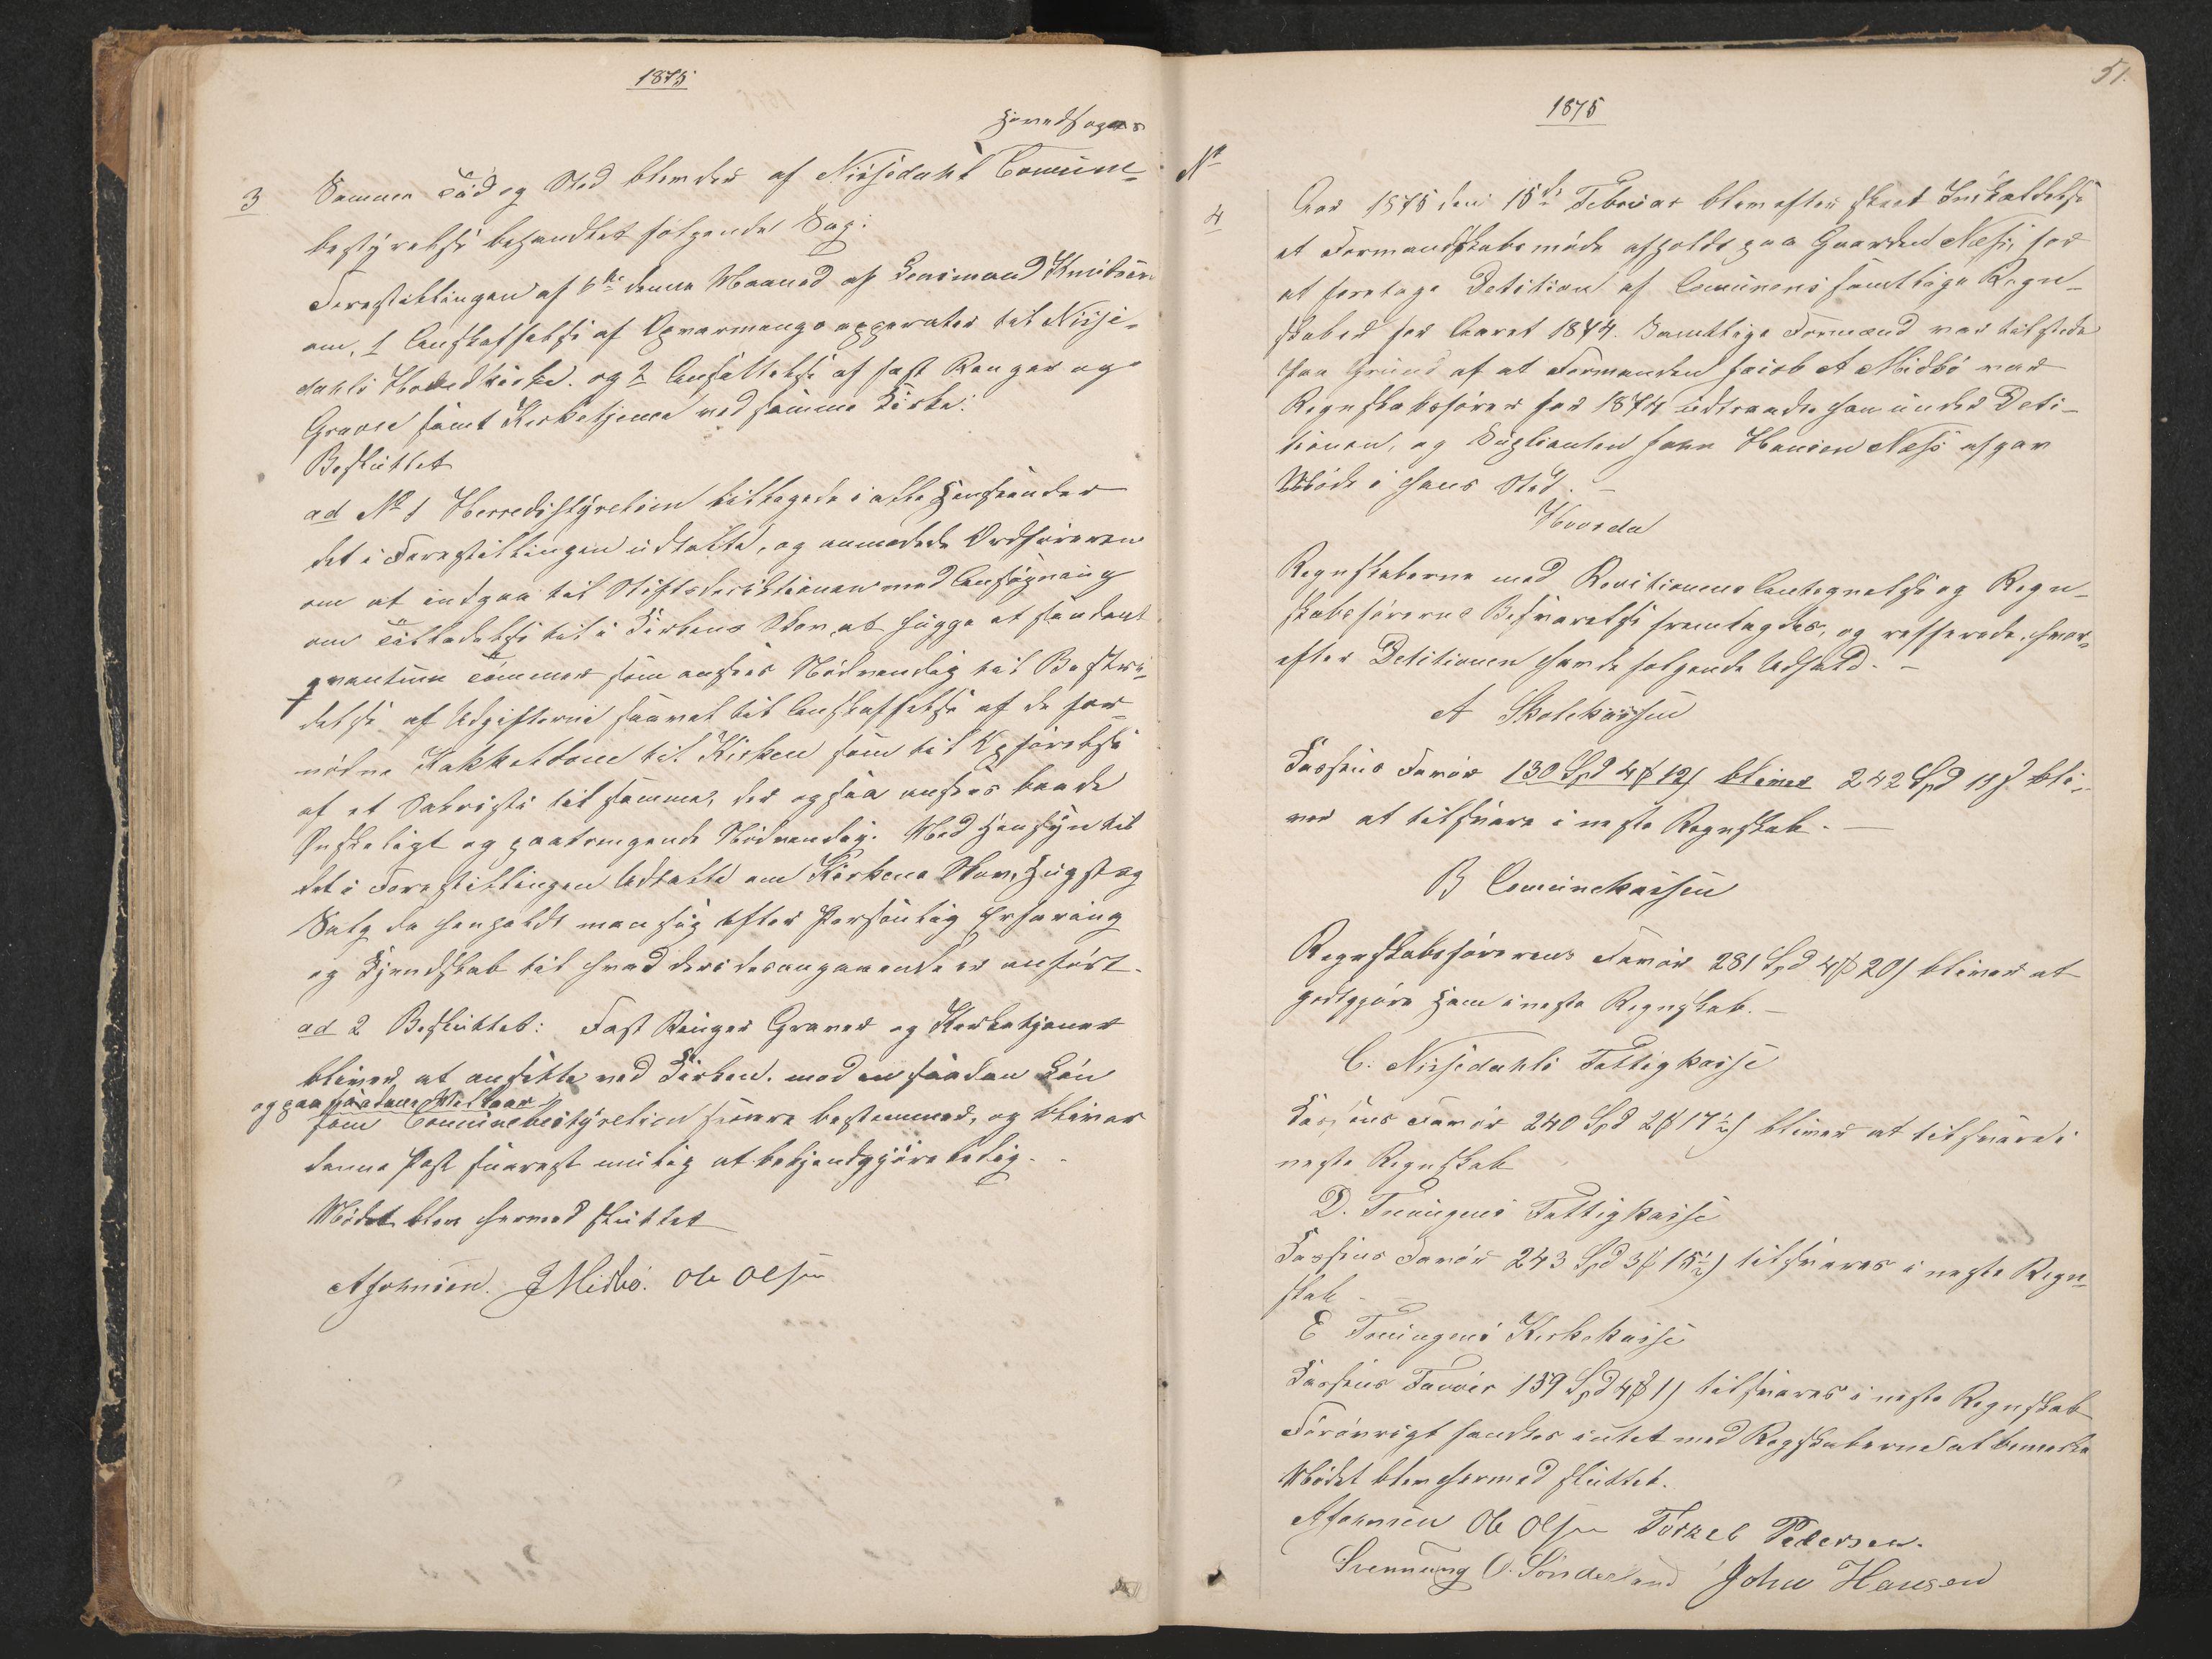 1875
Hovedsogns
3 Samme Tid og Sted blev der af Nissedahls Comune-
bestyrelse behandlet følgende Sag:
Forestillingen af 6te denne Maaned af Lensmand Knudsen
om, 1 Anskaffelse af Opvarmings apparater til Nisse-
dahls Hovedkirke. og 2 Ansættelse af fast Ringer og
Graver samt Kirketjener ved samme Kirke:
Besluttet
ad No 1 Herredsstyrelsen tiltræder i alle Henseender
det i Forestillingen udtalte, og anmodede Ordføreren
om at indgaa til Stiftsdirektionen med Ansøgning
om Tilladelse til i Kirkens Skov at hugge et saadant
qvantum Tømmer som ansees Nødvendig til Bestri-
delse af Udgifterne saavel til Anskaffelse af de for-
nødne Kakkelovne til Kirken som til Opførelse
af et Sakristi til samme, der ogsaa ansees baade
Ønskeligt og paatrengende Nødvendig. Med Hensyn til
det i Forestillingen Udtalte om Kirkens Skov, Hugst og
Salg da henholdt man sig efter Personlig Erfaring
og Kjendskab til hvad deri desangaaende er anført.
ad 2 Besluttet: Fast Ringer Graver og Kirketjener
bliver at ansætte ved Kirken. mod en saadan Løn
og paa saadane Vilkaar
som Comunebestyrelsen senere bestemmer, og bliver
denne Post snarest mulig at bekjendtgjøre ledig.
Mødet blev hermed sluttet
AJohnsen. JMidbö. Ole Olsen
51.
1875
No
4 Aar 1875 den 15de Februar blev efter skeet Indkaldelse
et Formandskabsmøde afholdt paa Gaarden Næss, for
at foretage Desition af Comunens samtlige Regn-
skaber for Aaret 1874. Samtlige Formænd var tilstede
Paa Grund af at Formanden Jacob A Midbö var
Regnskabsfører for 1874 udtraadte han under Desi-
tionen, og Suplianten John Hansen Næss afgav
Møde i hans Sted. -
Hvorda
Regnskaberne med Revitionens Antegnelse og Regn-
skabsførerens Besvarelse fremlagdes, og refferede, hvor-
efter Desitionen havde følgende Udfald. -
A Skolekassen
Kassens Favör 130 Spd 4 ß 12/ bliver 242 Spd 11 ß bli-
ver at tilsvare i neste Regnskab. -
B Comunekassen
Regnskabsførerens Favör 281 Spd 4 ß 20/ bliver at
godtgjøre Ham i neste Regnskab. -
C. Nissedahls Fattigkasse
Kassens Favör 240 Spd 2 ß 17½/ bliver at tilsvare i
neste Regnskab
D. Treungens Fattigkasse
Kassens Favör 243 Spd 3 ß 15½/ tilsvares i neste Regn-
skab -
E Treungens Kirkekasse
Kassens Favör 139 Spd 4 ß 1/ tilsvares i neste Regnskab
Forøvrigt fandtes intet med Regskaberne at bemerke
Mødet blev hermed sluttet.
AJohnsen Ole Olsen Torkel Pedersen.
Svennung O. Sönderland John Hansen